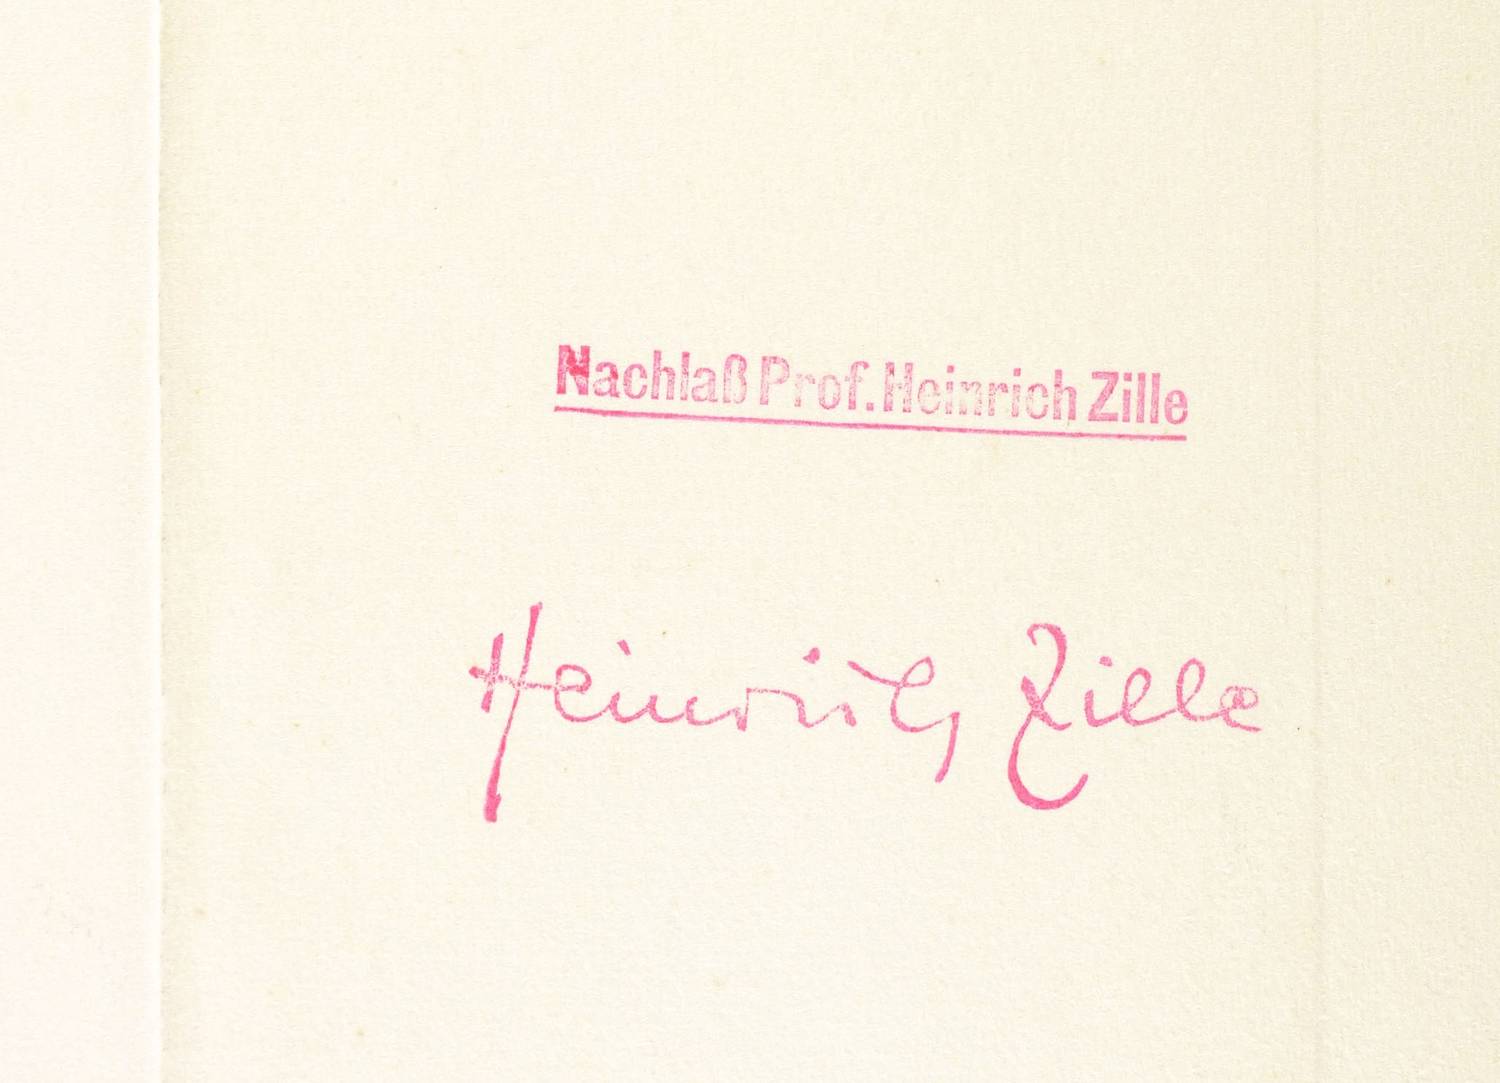 Nachlaß Prof. Heinrich Zille
Heinrich Zille